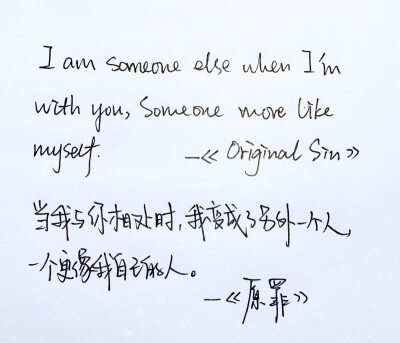 I am someone else when I'm
with you, Someone more like
myself.
—《Original Sin》
当我与你相处时，我变成了另外一个人，
一个更像我自己的人。
—《原罪》